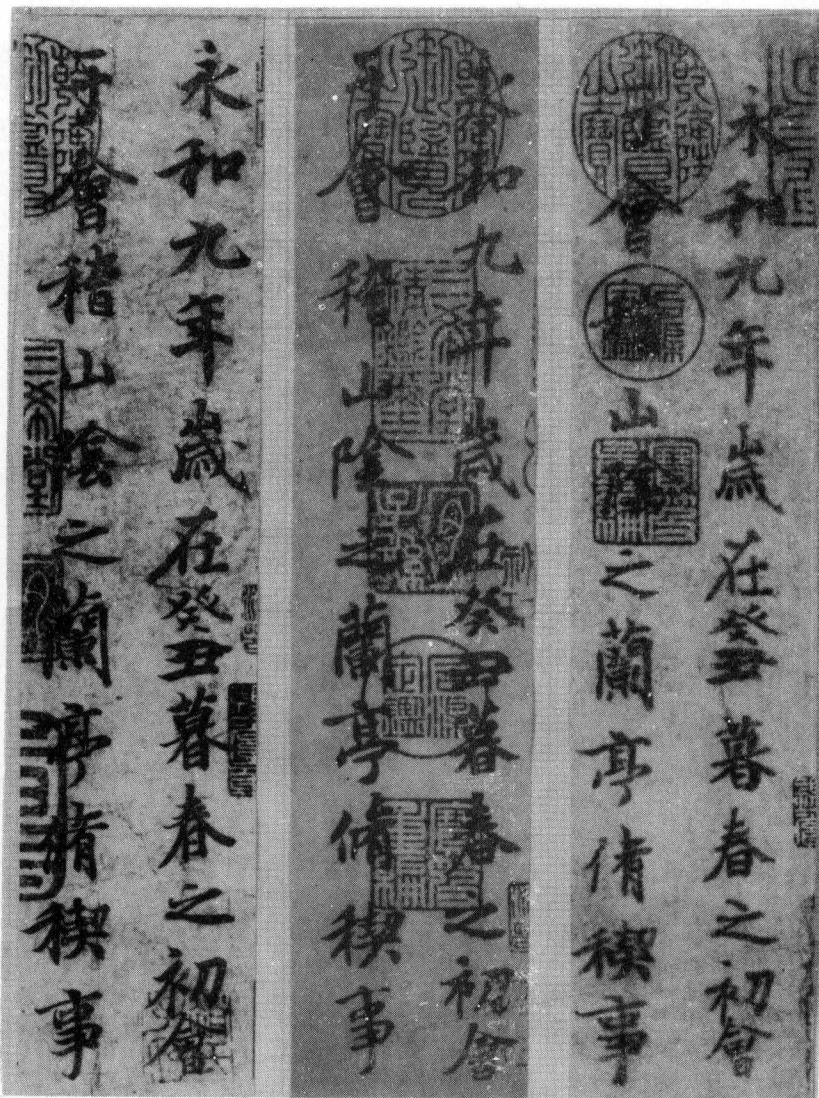 永和九年歲在癸丑暮春之初會
于會稽山陰之蘭亭脩稧事
永和九年歲在癸丑暮春之初會
于會稽山陰之蘭亭脩稧事
永和九年歲在癸丑暮春之初會
于會稽山陰之蘭亭脩稧事